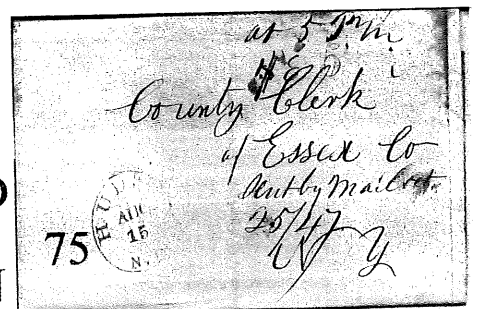 at 5 P.M.
County Clerk
of Essex Co
Sent by Mail Oct.
25/47
N Y
HUD
AUG
15
N.
75